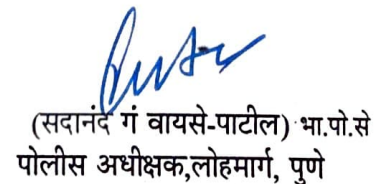 (सदानंद गं वायसे-पाटील) भा.पो.से
पोलीस अधीक्षक,लोहमार्ग, पुणे